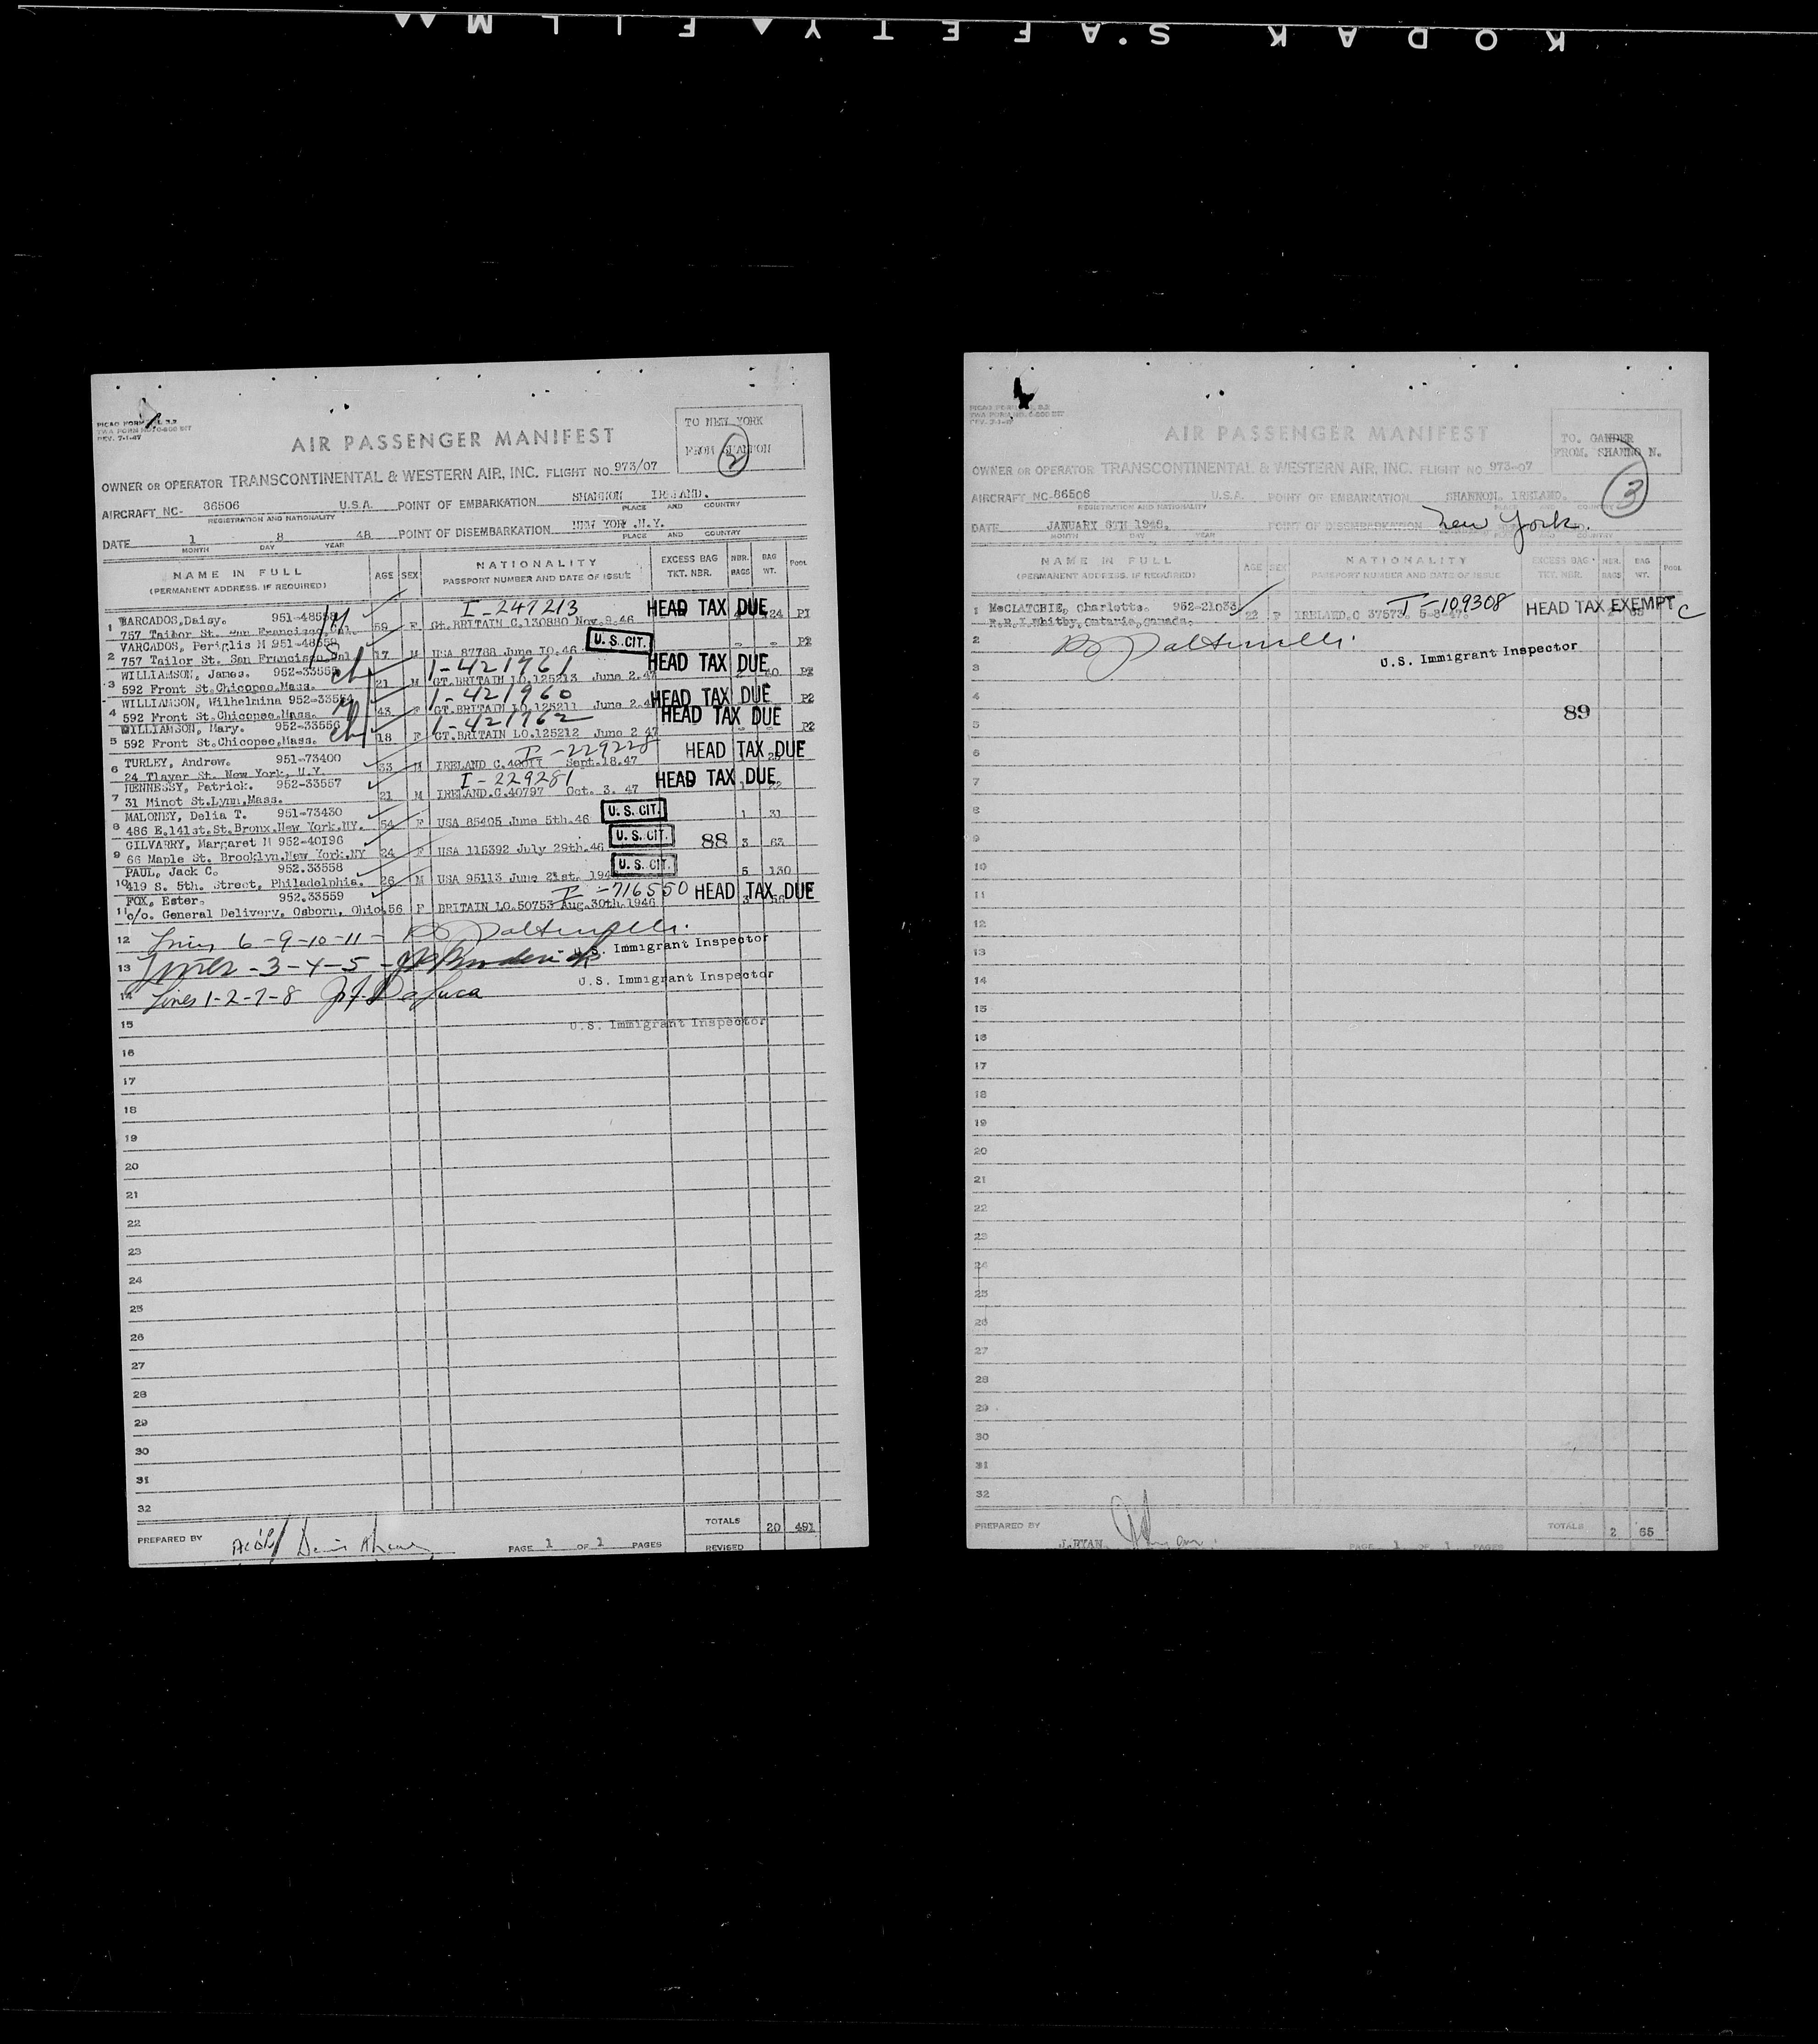 KODAK SAFETY FILM
PICAO FORM
REV. 7-1-47
AIR PASSENGER MANIFEST
TO NEW YORK
FROM SHANNON
2
OWNER OR OPERATOR TRANSCONTINENTAL & WESTERN AIR, INC. FLIGHT NO. 973/07
AIRCRAFT NC- 86506 U.S.A. POINT OF EMBARKATION SHANNON IRELAND.
REGISTRATION AND NATIONALITY PLACE AND COUNTRY
DATE 1 8 48 POINT OF DISEMBARKATION NEW YORK .N.Y.
MONTH DAY YEAR PLACE AND COUNTRY
NAME IN FULL AGE SEX NATIONALITY EXCESS BAG NBR. BAG POOL
(PERMANENT ADDRESS, IF REQUIRED) PASSPORT NUMBER AND DATE OF ISSUE TKT. NBR. BAGS WT.
I-247213 HEAD TAX DUE
1 VARCADOS, Daisy. 951-48558 59 F Gt.BRITAIN C.130880 Nov.9.46 24 P1
757 Tailor St. San Francisco, Cal.
2 VARCADOS, Periglis M 951-48559 17 M USA 87788 June 10.46 U.S. CIT. - - P2
757 Tailor St. San Francisco, Cal
1-421961 HEAD TAX DUE
3 WILLIAMSON, James. 952-33555 21 M GT.BRITAIN LO.125213 June 2.47 P2
592 Front St. Chicopee, Mass.
1-421960 HEAD TAX DUE
4 WILLIAMSON, Wilhelmina 952-33554 43 F GT.BRITAIN LO.125211 June 2.47 P2
592 Front St. Chicopee, Mass.
1-421962 HEAD TAX DUE
5 WILLIAMSON, Mary. 952-33556 18 F GT.BRITAIN LO.125212 June 2 47 - - P2
592 Front St. Chicopee, Mass.
I-229228 HEAD TAX DUE
6 TURLEY, Andrew. 951-73400 33 M IRELAND C.40011 Sept.18.47
24 Thayer St. New York, N.Y.
I-229281 HEAD TAX DUE
7 HENNESSY, Patrick. 952-33557 21 M IRELAND.C.40797 Oct. 3. 47
31 Minot St. Lynn, Mass.
8 MALONEY, Delia T. 951-73430 54 F USA 85405 June 5th.46 U.S. CIT. 1 31
486 E.141st.St.Bronx.New York.NY.
9 GILVARRY, Margaret M 952-40196 24 F USA 115392 July 29th.46 U.S. CIT. 88 3 63
66 Maple St. Brooklyn.New York.NY
10 PAUL, Jack C. 952.33558 26 M USA 95113 June 21st. U.S. CIT. 5 130
419 S. 5th. Street, Philadelphia.
I-716550 HEAD TAX DUE
11 FOX, Ester. 952.33559 56 F BRITAIN LO.50753 Aug.30th.1946 3 56
c/o. General Delivery, Osborn, Ohio.
12 Lines 6-9-10-11-
U.S. Immigrant Inspector
13 Lines -3-4-5 -
U.S. Immigrant Inspector
14 Lines 1-2-7-8 J.F. DeLuca
15 U.S. Immigrant Inspector
16
17
18
19
20
21
22
23
24
25
26
27
28
29
30
31
32
PREPARED BY TOTALS 20 491
PAGE 1 OF 1 PAGES REVISED
AIR PASSENGER MANIFEST
TO. GANDER
FROM. SHANNON.
3
OWNER OR OPERATOR TRANSCONTINENTAL & WESTERN AIR, INC. FLIGHT NO. 973-07
AIRCRAFT NC-86506 U.S.A. POINT OF EMBARKATION SHANNON. IRELAND.
REGISTRATION AND NATIONALITY PLACE AND COUNTRY
DATE JANUARY 8TH 1948. POINT OF DISEMBARKATION New York.
MONTH DAY YEAR AND COUNTRY
NAME IN FULL AGE SEX NATIONALITY EXCESS BAG NBR. BAG POOL
(PERMANENT ADDRESS, IF REQUIRED) PASSPORT NUMBER AND DATE OF ISSUE TKT. NBR. BAGS WT.
I-109308 HEAD TAX EXEMPT C
1 McCLATCHIE, Charlotte. 952-21033 22 F IRELAND.C 37573. 5-8-47. 2 65
R.R.1.Whitby, Ontario, Canada.
2
3 U.S. Immigrant Inspector
4
5 89
6
7
8
9
10
11
12
13
14
15
16
17
18
19
20
21
22
23
24
25
26
27
28
29
30
31
32
PREPARED BY TOTALS 2 65
J.RYAN. PAGE 1 OF 1 PAGES